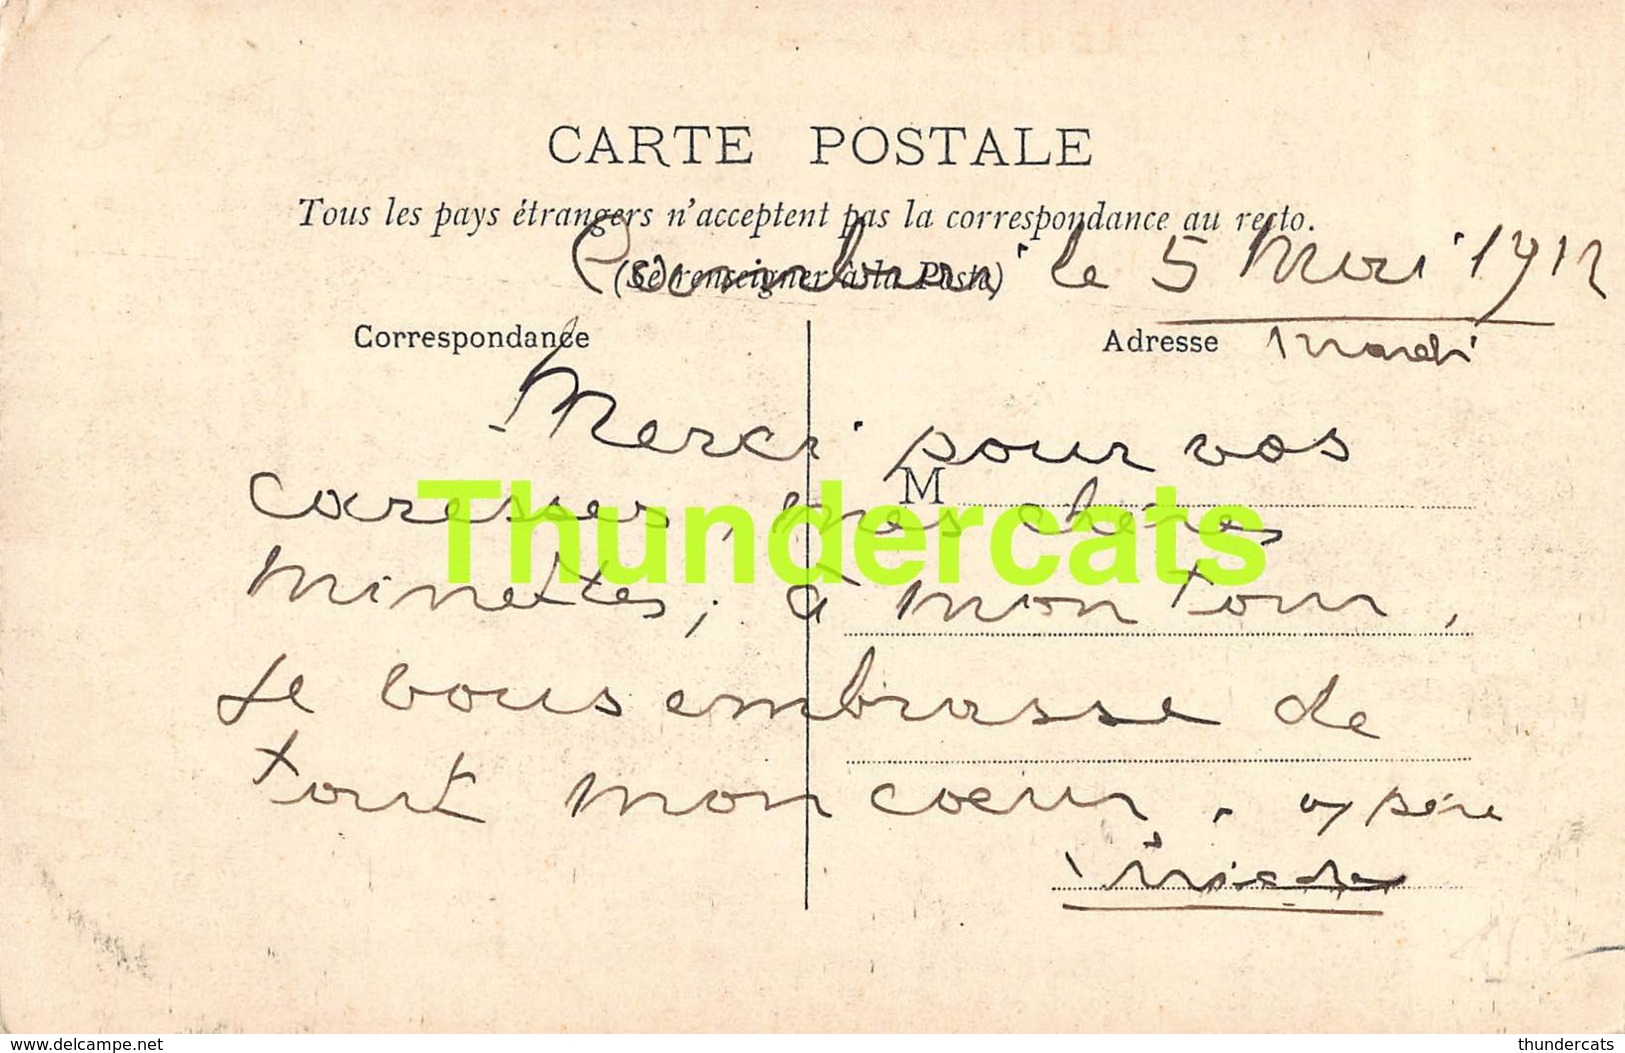 CARTE POSTALE
Tous les pays étrangers n'acceptent pas la correspondance au recto.
(Se renseigner à la Poste)
le 5 Mars 1912
Correspondance
Adresse
mardi
Merci pour vos
M
caresses, mes chères
Thundercats
minettes; à mon tour,
je vous embrasse de
tout mon coeur.
père
www.delcampe.net
thundercats